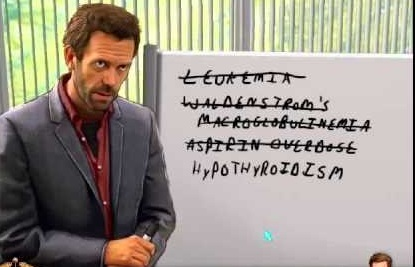 LEUKEMIA
WALDENSTROM'S
MACROGLOBULINEMIA
ASPIRIN OVERDOSE
HYPOTHYROIDISM